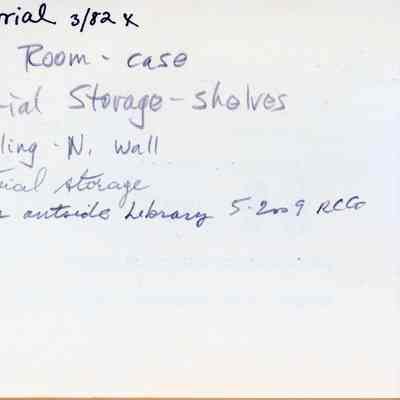 rial 3/82 x
Room - case
ial Storage - shelves
ling - N. Wall
ial storage
outside Library 5-2009 RCCo